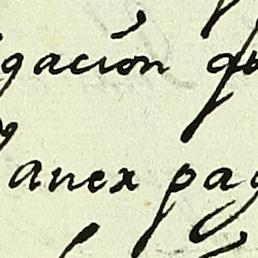 gación qu
anex pag